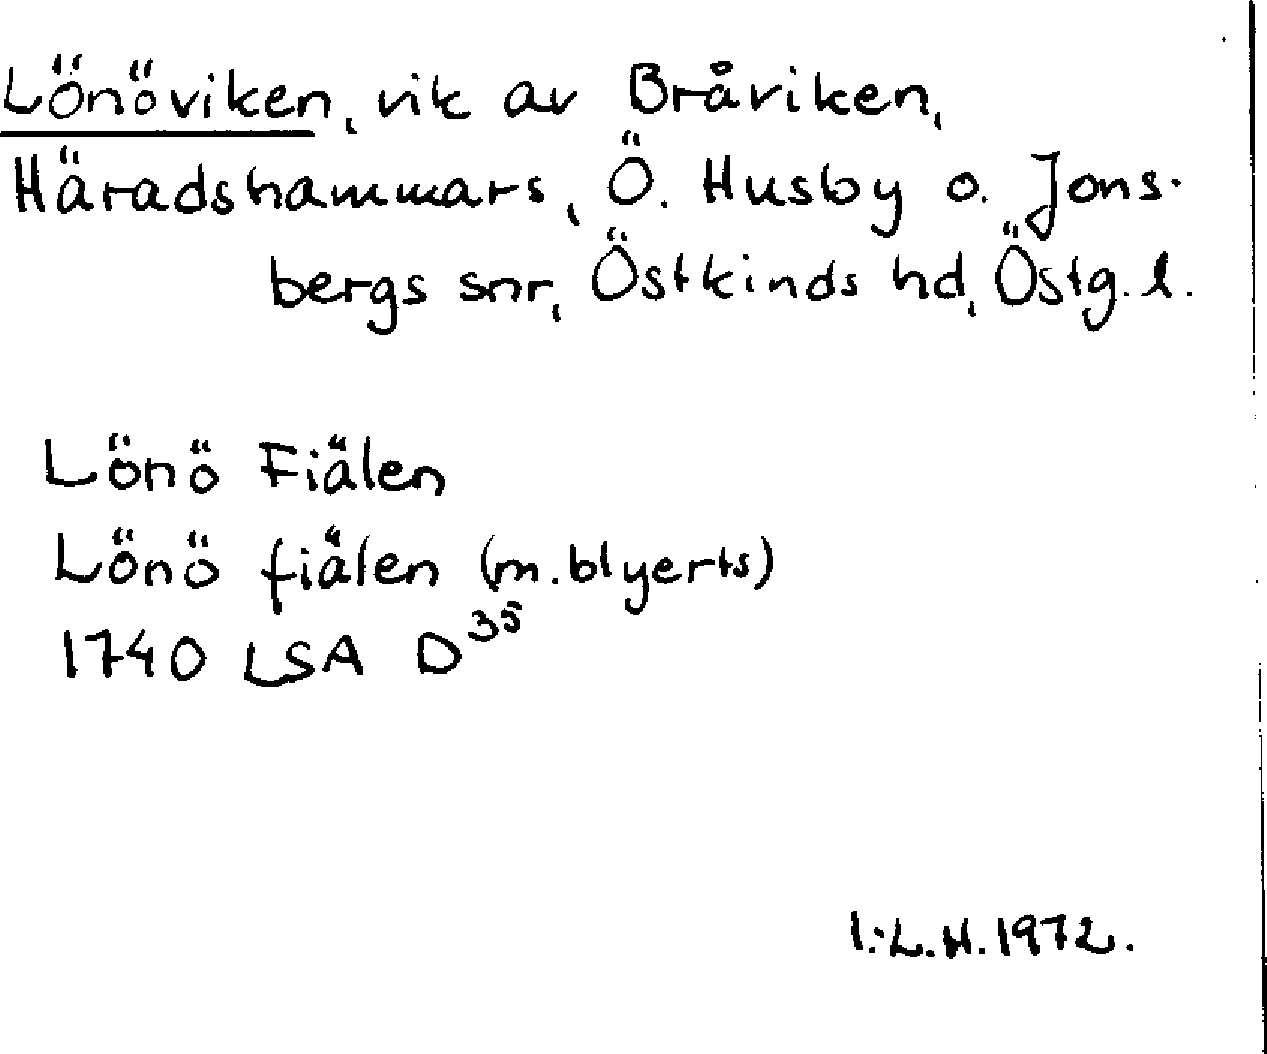 Lönöviken, vik av Bråviken,
Häradshammars, Ö. Husby o. Jons-
bergs snr, Östkinds hd, Östg. l.
Lönö Fiälen
Lönö fiälen (m. blyerts)
1740 LSA D35
I:L.H. 1972.